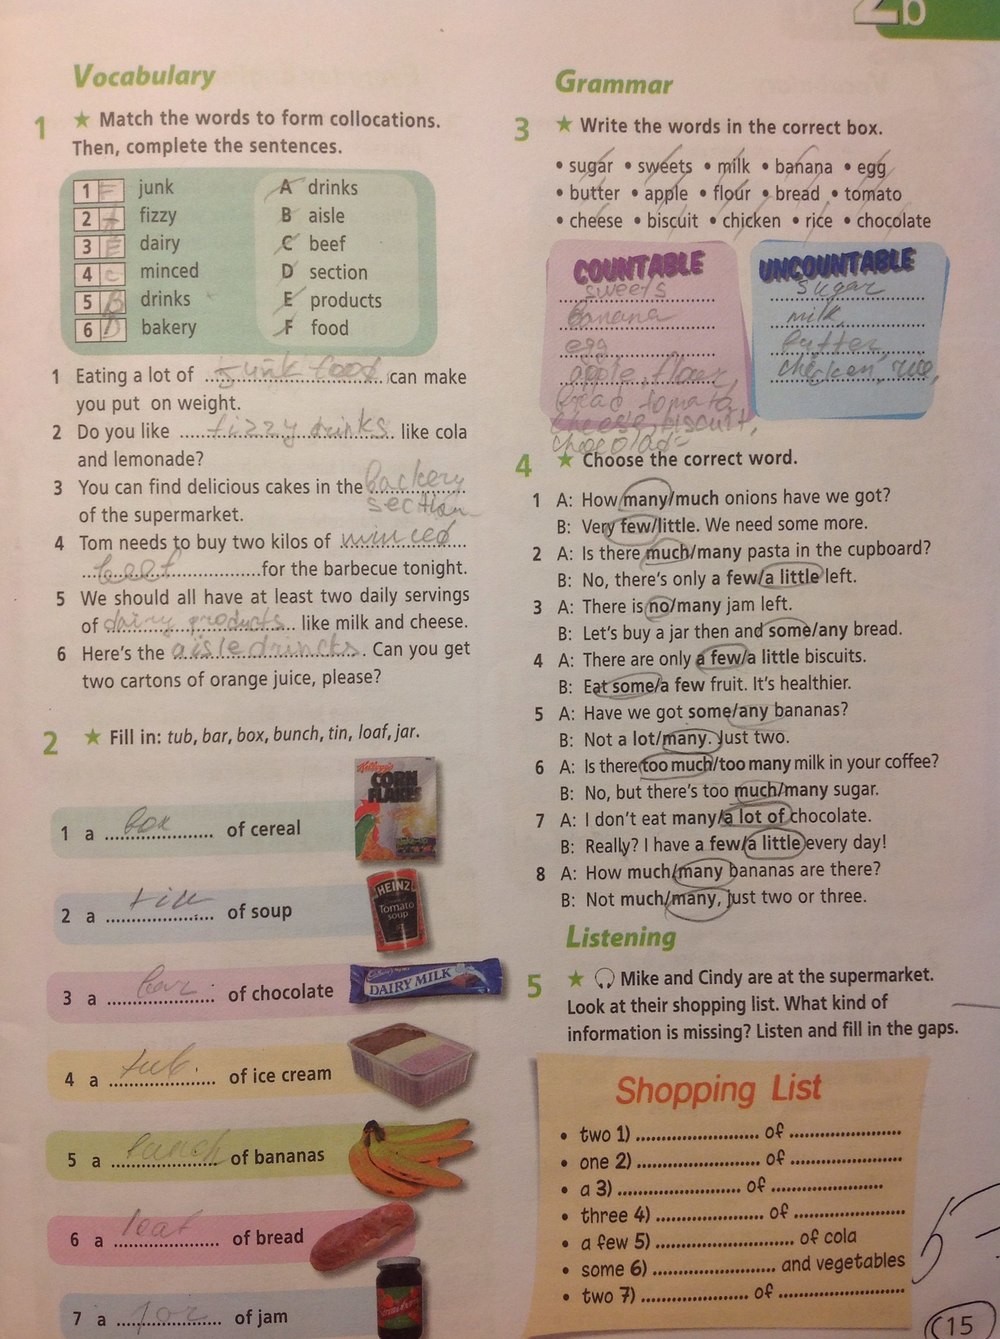 2b
Vocabulary
1 ★ Match the words to form collocations.
Then, complete the sentences.
1 F junk
2 A fizzy
3 E dairy
4 C minced
5 B drinks
6 D bakery
A drinks
B aisle
C beef
D section
E products
F food
1 Eating a lot of junk food can make
you put on weight.
2 Do you like fizzy drinks like cola
and lemonade?
3 You can find delicious cakes in the backery
section
of the supermarket.
4 Tom needs to buy two kilos of minced
beef for the barbecue tonight.
5 We should all have at least two daily servings
of dairy products like milk and cheese.
6 Here's the aisle drincks. Can you get
two cartons of orange juice, please?
2 ★ Fill in: tub, bar, box, bunch, tin, loaf, jar.
Kellogg's
CORN
FLAKES
1 a box of cereal
HEINZ
Tomato
soup
2 a tin of soup
DAIRY MILK
3 a bar of chocolate
4 a tub of ice cream
5 a bunch of bananas
6 a loaf of bread
7 a jar of jam
Grammar
3 ★ Write the words in the correct box.
• sugar • sweets • milk • banana • egg
• butter • apple • flour • bread • tomato
• cheese • biscuit • chicken • rice • chocolate
COUNTABLE
sweets
banana
egg
apple, flour,
bread tomato,
cheese, biscuit,
UNCOUNTABLE
sugar
milk,
butter,
chicken, rice,
4 ★ Choose the correct word.
1 A: How many/much onions have we got?
B: Very few/little. We need some more.
2 A: Is there much/many pasta in the cupboard?
B: No, there's only a few/a little left.
3 A: There is no/many jam left.
B: Let's buy a jar then and some/any bread.
4 A: There are only a few/a little biscuits.
B: Eat some/a few fruit. It's healthier.
5 A: Have we got some/any bananas?
B: Not a lot/many. Just two.
6 A: Is there too much/too many milk in your coffee?
B: No, but there's too much/many sugar.
7 A: I don't eat many/a lot of chocolate.
B: Really? I have a few/a little every day!
8 A: How much/many bananas are there?
B: Not much/many, just two or three.
Listening
5 ★ Mike and Cindy are at the supermarket.
Look at their shopping list. What kind of
information is missing? Listen and fill in the gaps.
Shopping List
• two 1) .......................... of ........................
• one 2) .......................... of ........................
• a 3) .......................... of ........................
• three 4) .......................... of ........................
• a few 5) .......................... of cola
• some 6) .......................... and vegetables
• two 7) .......................... of ........................
15